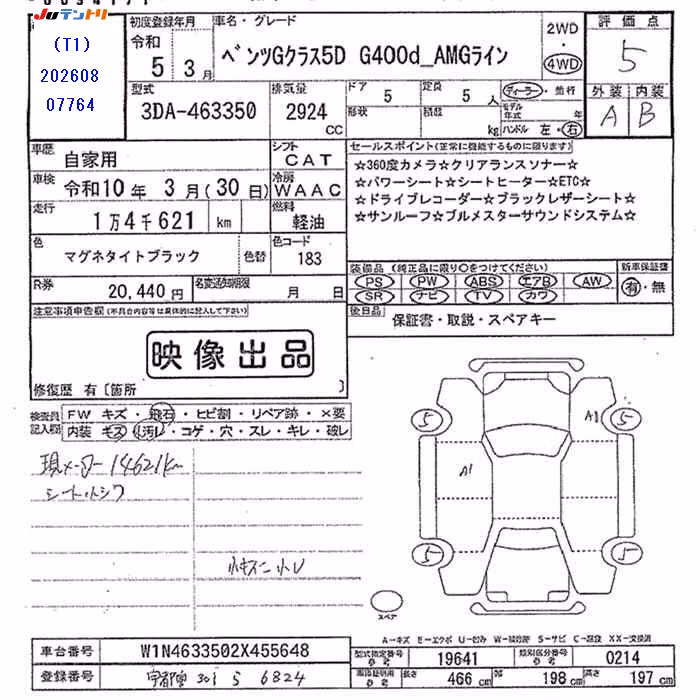 Juテントリ
(T1)
202608
07764
初度登録年月
令和
5 3月
車名・グレード
ベンツGクラス5D G400d_AMGライン
2WD
・
4WD
評価点
5
外装 内装
A B
型式
3DA-463350
排気量
2924
CC
ドア
5
定員
5人
形状
積載
kg
ディーラー・並行
モデル年式 年
ハンドル 左・右
車歴
自家用
シフト
CAT
車検
令和10年 3月(30日)
冷房
WAAC
走行
1万4千621 km
燃料
軽油
色
マグネタイトブラック
色替
色コード
183
セールスポイント(正常に機能するものに限ります)
☆360度カメラ☆クリアランスソナー☆
☆パワーシート☆シートヒーター☆ETC☆
☆ドライブレコーダー☆ブラックレザーシート☆
☆サンルーフ☆ブルメスターサウンドシステム☆
R券
20,440円
名変通知期限
月 日
装備品(純正品に限り○をつけてください)
PS PW ABS エアB AW
SR ナビ TV カワ
新車保証書
有・無
注意事項申告欄(不具合内容等は具体的に記入して下さい)
映像出品
修復歴 有〔箇所 〕
後日品
保証書・取説・スペアキー
検査員記入欄
FW キズ・飛石・ヒビ割・リペア跡・×要
内装 キズ・汚レ・コゲ・穴・スレ・キレ・破レ
現メーター14621km
シート小シワ
小キズ小凹
5
5
5
5
A1
A1
スペア
A-キズ E-エクボ U-凹み W-補修跡 S-サビ C-腐食 XX-交換済
車台番号
W1N4633502X455648
登録番号
宇都宮 301 5 6824
型式指定番号
参考
19641
類別区分番号
参考
0214
車両証明用
参考
長さ
466 cm
幅
198 cm
高さ
197 cm